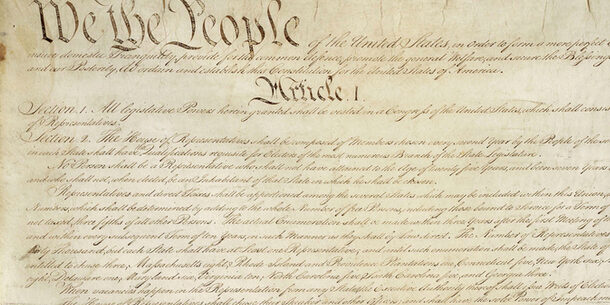 We the People of the United States, in Order to form a more perfect
domestic Tranquility, provide for the common defence, promote the general Welfare, and secure the Blessings
and our Posterity, do ordain and establish this Constitution for the United States of America.
Article. I.
Section. 1. All legislative Powers herein granted shall be vested in a Congress of the United States, which shall
of Representatives.
Section. 2. The House of Representatives shall be composed of Members chosen every second Year by the People of the
in each State shall have Qualifications requisite for Electors of the most numerous Branch of the State Legislature.
No Person shall be a Representative who shall not have attained to the Age of twenty five Years, and been seven Years
and who shall not, when elected, be an Inhabitant of that State in which he shall be chosen.
Representatives and direct Taxes shall be apportioned among the several States which may be included within this Union,
Numbers, which shall be determined by adding to the whole Number of free Persons, including those bound to Service for a Term of
not taxed, three fifths of all other Persons. The actual Enumeration shall be made within three Years after the first Meeting of
and within every subsequent Term of ten Years, in such Manner as they shall by Law direct. The Number of Representatives
thirty Thousand, but each State shall have at Least one Representative; and until such enumeration shall be made, the State of
entitled to chuse three, Massachusetts eight, Rhode Island and Providence Plantations one, Connecticut five, New York six,
eight, Delaware one, Maryland six, Virginia ten, North Carolina five, South Carolina five, and Georgia three.
When vacancies happen in the Representation from any State, the Executive Authority thereof shall issue Writs of
The House of Representatives shall chuse their Speaker and other Officers; and shall have the sole Power of